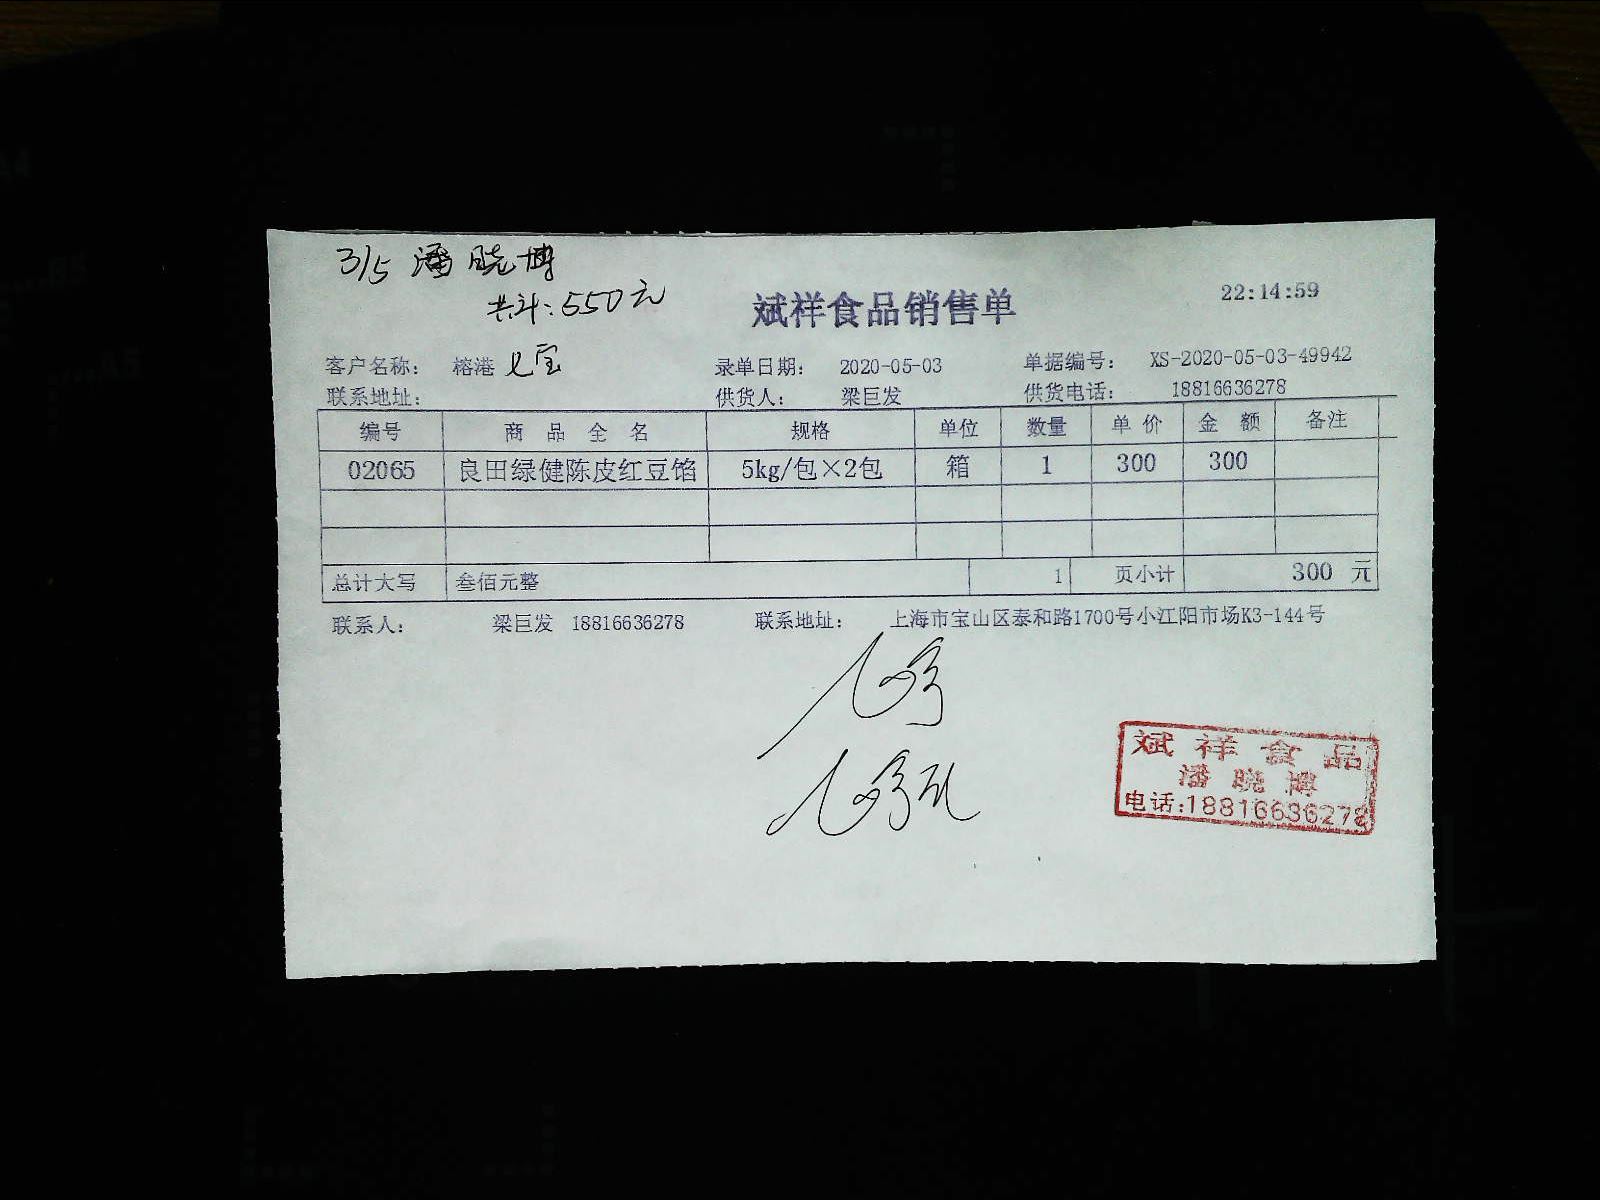 3/5 潘晓博
共计:550元
斌祥食品销售单 22:14:59
客户名称: 榕港 七宝 录单日期: 2020-05-03 单据编号: XS-2020-05-03-49942
联系地址: 供货人: 梁巨发 供货电话: 18816636278
编号 商品全名 规格 单位 数量 单价 金额 备注
02065 良田绿健陈皮红豆馅 5kg/包×2包 箱 1 300 300
总计大写 叁佰元整 1 页小计 300 元
联系人: 梁巨发 18816636278 联系地址: 上海市宝山区泰和路1700号小江阳市场K3-144号
斌祥食品
潘晓博
电话:18816636278